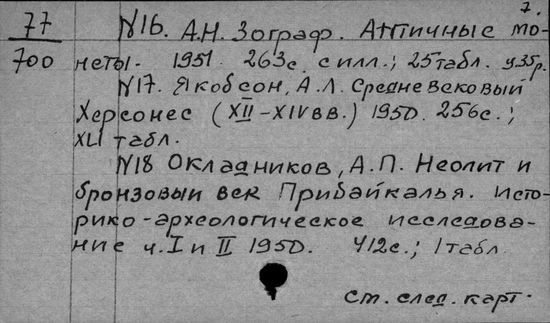 7.
77 N16. А.Н. Зограф. Античные мо-
700 неты. 1951. 263с. с илл.; 25табл. ц.35р.
N17. Якобсон, А.Л. Средневековый
Херсонес (XII-XIVвв.) 1950. 256с.;
XLI табл.
N18 Окладников, А.П. Неолит и
бронзовый век Прибайкалья. Исто-
рико-археологическое исследова-
ние ч. I и II 1950. 412с.; 1табл.
См. след. карт.